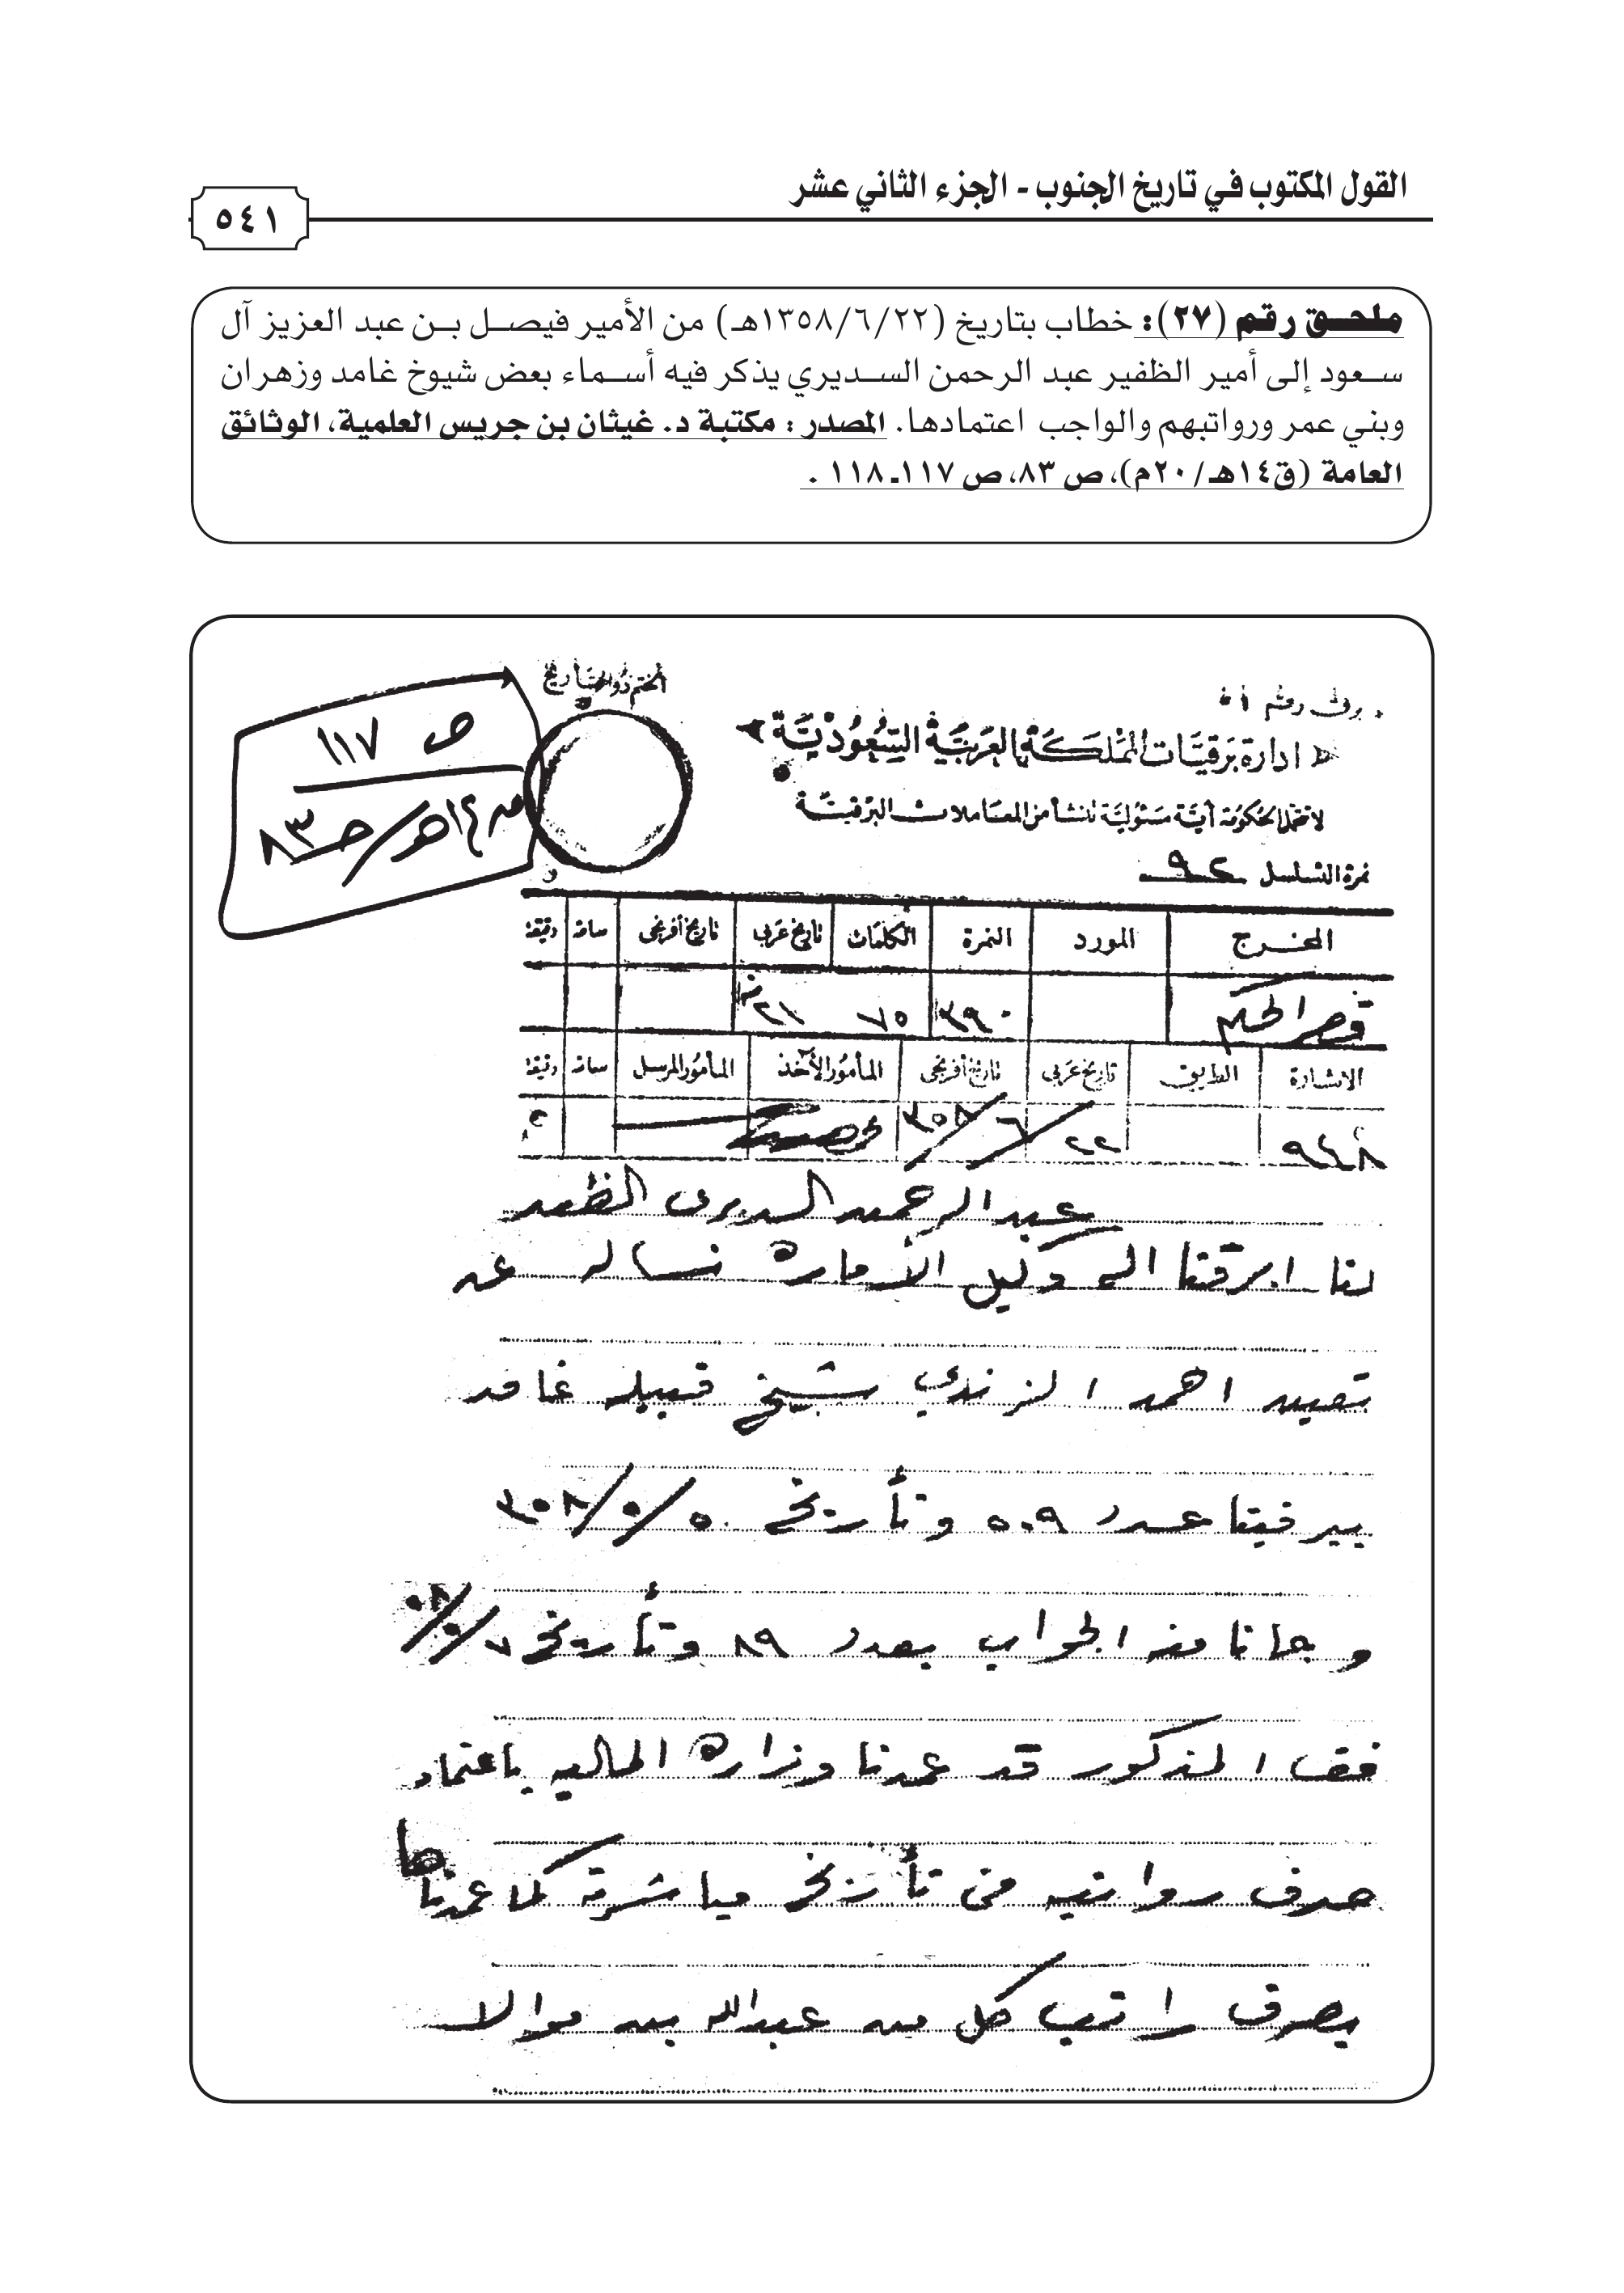 القول المكتوب في تاريخ الجنوب - الجزء الثاني عشر
٥٤١
ملحق رقم (٢٧): خطاب بتاريخ (١٣٥٨/٦/٢٢هـ) من الأمير فيصل بن عبد العزيز آل
سعود إلى أمير الظفير عبد الرحمن السديري يذكر فيه أسماء بعض شيوخ غامد وزهران
وبني عمر ورواتبهم والواجب اعتمادها. المصدر: مكتبة د. غيثان بن جريس العلمية، الوثائق
العامة (ق١٤هـ/٢٠م)، ص ٨٣، ص ١١٧ـ ١١٨ .
الختم ذو التاريخ
ص ١١٧
١٤هـ/ص ٨٣
برق رقم
ادارة برقيات المملكة العربية السعودية
لا تتحمل الحكومة أية مسئولية تنشأ من المعاملات البرقية
نمرة التسلسل ٩٢
المخرج المورد النمرة الكلمات تاريخ عربي تاريخ أفرنجي ساعة دقيقة
قصر الحكم ٣٩٠ ٧٥ ٢١
الاشارة الطريق تاريخ عربي تاريخ أفرنجي المأمور الآخذ المأمور المرسل ساعة دقيقة
٢٢/٦/٣٥٨
عبد الرحمن السديري الظفير
لنا ابرقنا الى وكيل الأمارة نساله عن
تعيين احمد الزندي شيخ قبيلة غامد
ببرقيتنا عدد ٥٠٩ وتأريخ ٥/٥/٣٥٨
وجانا منه الجواب بعدد ٨٩ وتأريخ ٧/٥/٥٨
المذكور قد عمدنا وزارة المالية باعتماد
صرف رواتبه من تأريخ مباشرته كما عمدناها
بصرف راتب كل من عبدالله بن